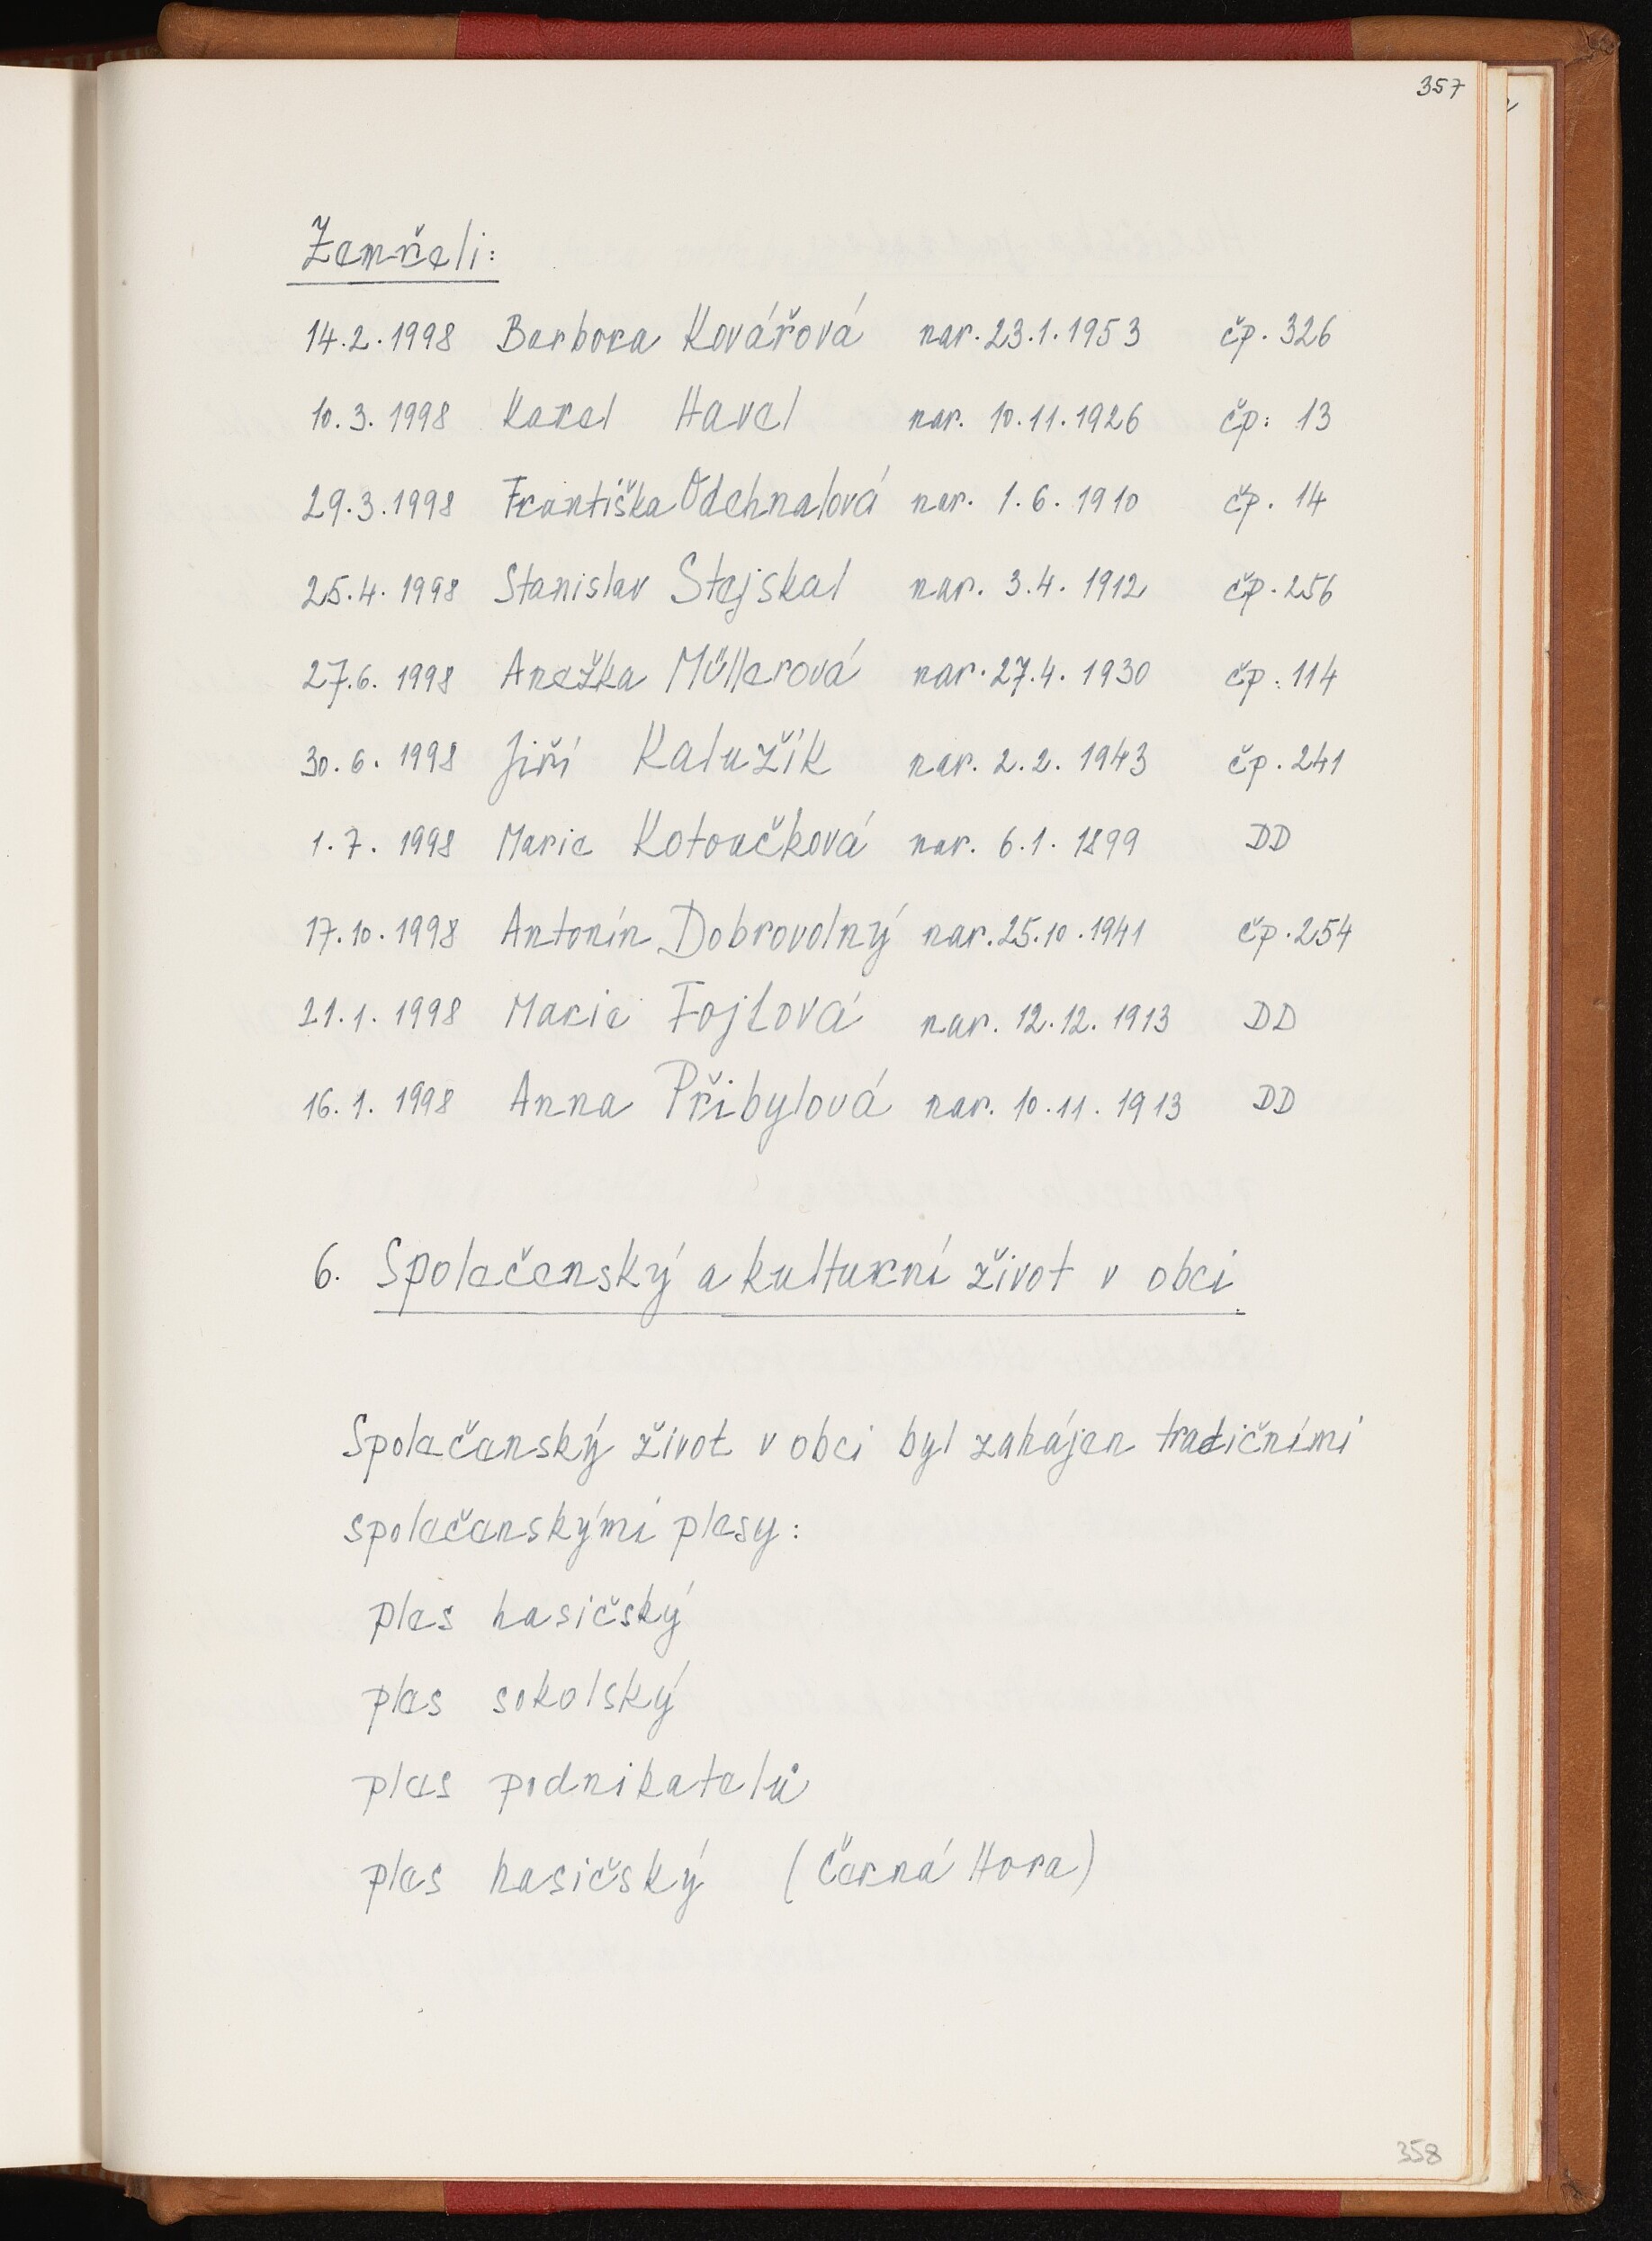 357
Zemřeli:
14.2.1998 Barbora Kovářová nar. 23.1.1953 čp. 326
10.3.1998 Karel Havel nar. 10.11.1926 čp: 13
29.3.1998 Františka Odehnalová nar. 1.6.1910 čp. 14
25.4.1998 Stanislav Stejskal nar. 3.4.1912 čp. 256
27.6.1998 Anežka Müllerová nar. 27.4.1930 čp: 114
30.6.1998 Jiří Kalužík nar. 2.2.1943 čp. 241
1.7.1998 Marie Kotoučková nar. 6.1.1899 DD
17.10.1998 Antonín Dobrovolný nar. 25.10.1941 čp. 254
21.1.1998 Marie Fojtová nar. 12.12.1913 DD
16.1.1998 Anna Přibylová nar. 10.11.1913 DD
6. Společenský a kulturní život v obci.
Společenský život v obci byl zahájen tradičními
společenskými plesy:
ples hasičský
ples sokolský
ples podnikatelů
ples hasičský (Černá Hora)
358